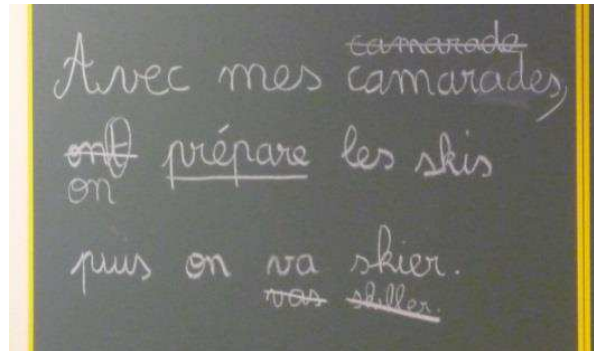 camarade
Avec mes camarades,
ont prépare les skis
on
puis on va skier.
vas skiller.